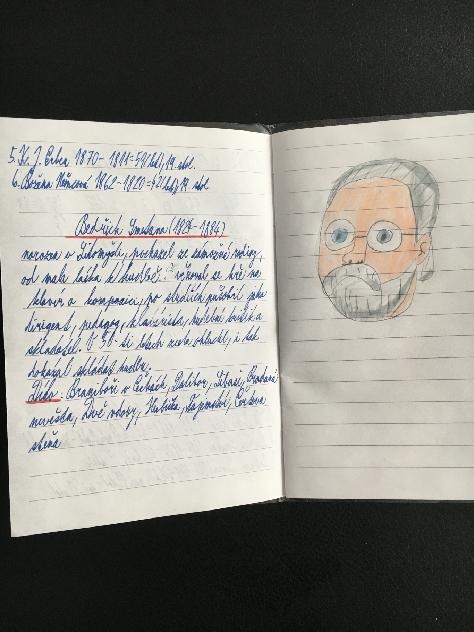 5. K. J. Erben 1870 - 1811 = 59 let, 19 stol.
6. Božena Němcová 1862 - 1820 = 42 let, 19 stol
Bedřich Smetana (1824 - 1884)
narozen v Litomyšli, pocházel ze zámožné rodiny,
od mala láska k hudbě. věnoval se hře na
klavír a kompozici, po studiích působil jako
dirigent, pedagog, klavírista, hudební kritik a
skladatel. V 50-ti letech zcela ohluchl, i tak
dokázal skládat hudbu.
Dílo: Braniboři v Čechách, Dalibor, Libuše, Prodaná
nevěsta, Dvě vdovy, Hubička, Tajemství, Čertova
stěna